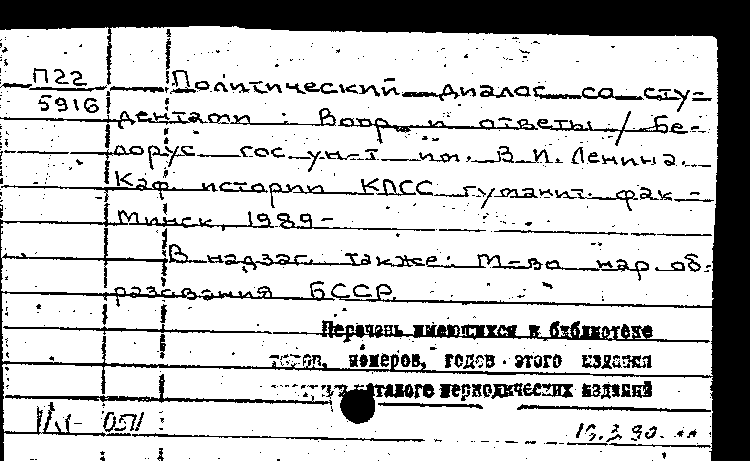 П22
5916
Политический диалог со сту=
дентами : Вопр. и ответы / Бе-
лорус. гос. ун-т им. В. И. Ленина.
Каф. истории КПСС гуманит. фак -
Минск, 1989-
В надзаг. также: М-во нар. об=
разования БССР.
Перечень имеющихся в библиотеке
томов, номеров, годов этого издания
каталоге периодических изданий
0571